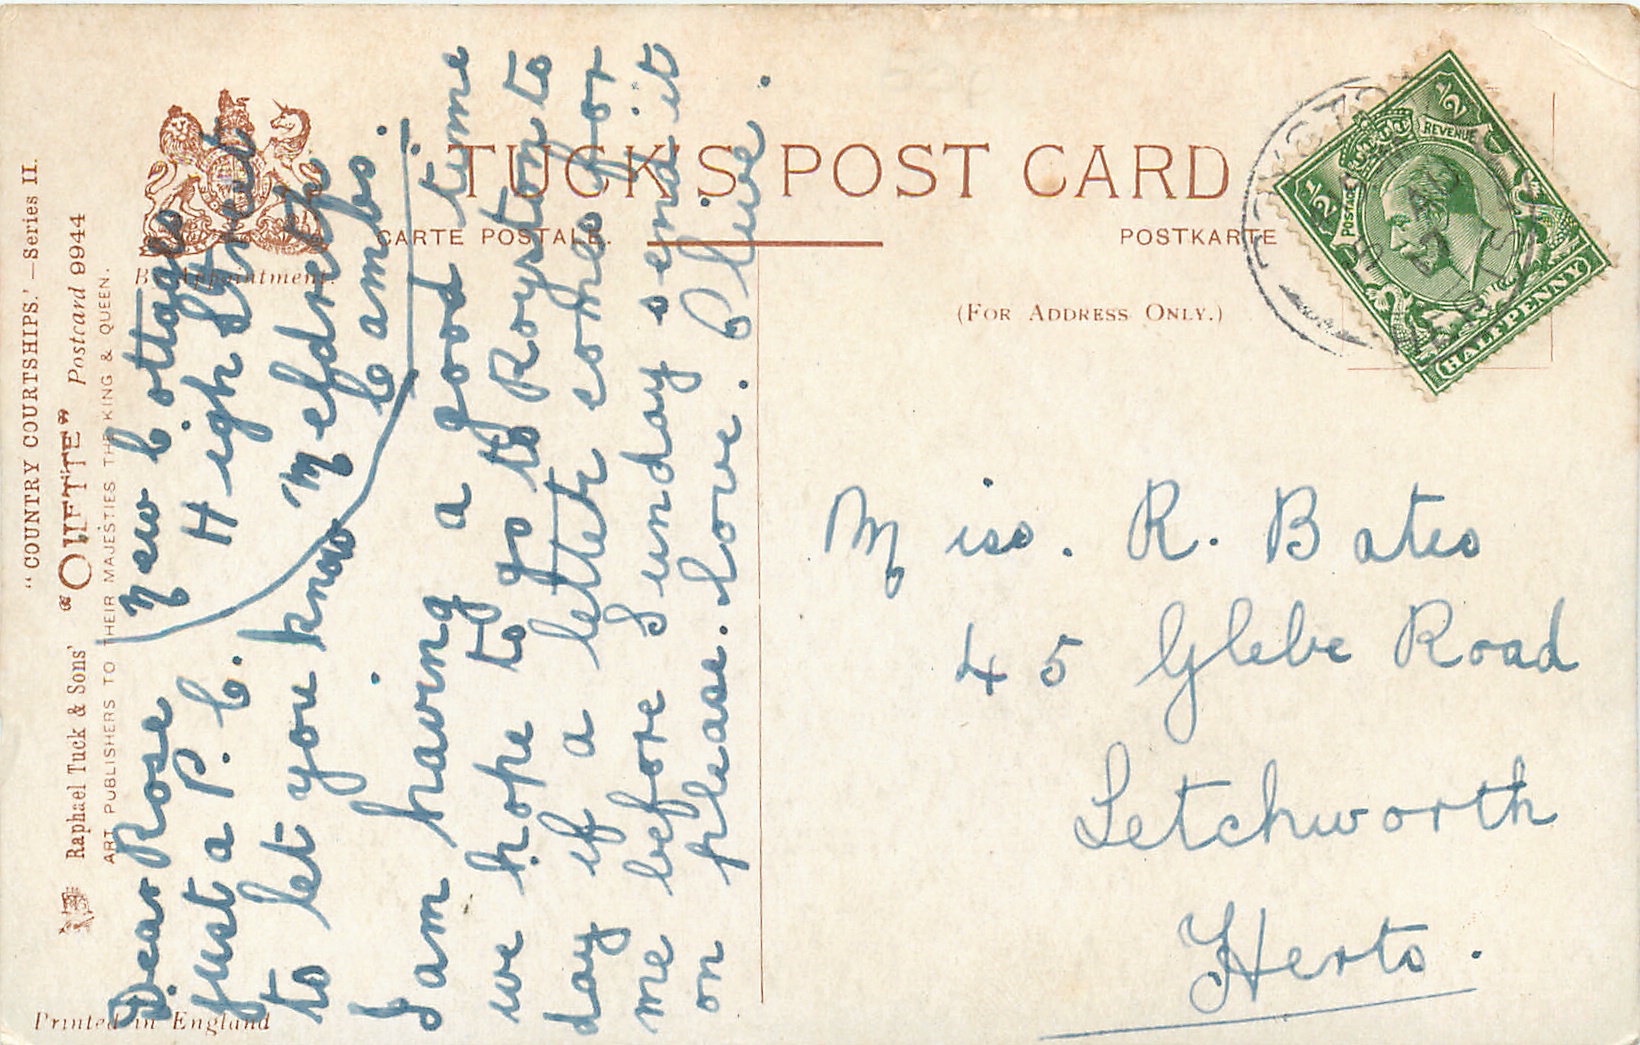 "COUNTRY COURTSHIPS."—Series II.
Raphael Tuck & Sons' "OILETTE" Postcard 9944
ART PUBLISHERS TO THEIR MAJESTIES THE KING & QUEEN.
By Appointment.
Printed in England
TUCK'S POST CARD
CARTE POSTALE.
POSTKARTE
(FOR ADDRESS ONLY.)
POSTAGE
REVENUE
1/2
1/2
HALFPENNY
New Cottages
High Street
Meldreth
Cambs.
Dear Rose
just a P. C.
to let you know
I am having a good time
we hope to go to Royston to
day if a letter comes for
me before Sunday send it
on please. love. Clive.
Miss. R. Bates
45 Glebe Road
Letchworth
Herts.